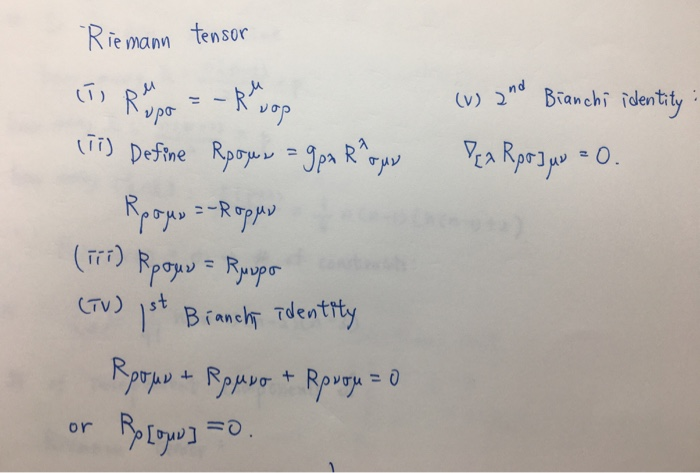 Riemann tensor
(i) R^μ_{νρσ} = -R^μ_{νσρ}
(ii) Define R_{ρσμν} = g_{ρλ} R^λ_{σμν}
R_{ρσμν} = -R_{σρμν}
(iii) R_{ρσμν} = R_{μνρσ}
(iv) 1st Bianchi identity
R_{ρσμν} + R_{ρμνσ} + R_{ρνσμ} = 0
or R_{ρ[σμν]} = 0.
(v) 2nd Bianchi identity :
∇_{[λ} R_{ρσ]μν} = 0.